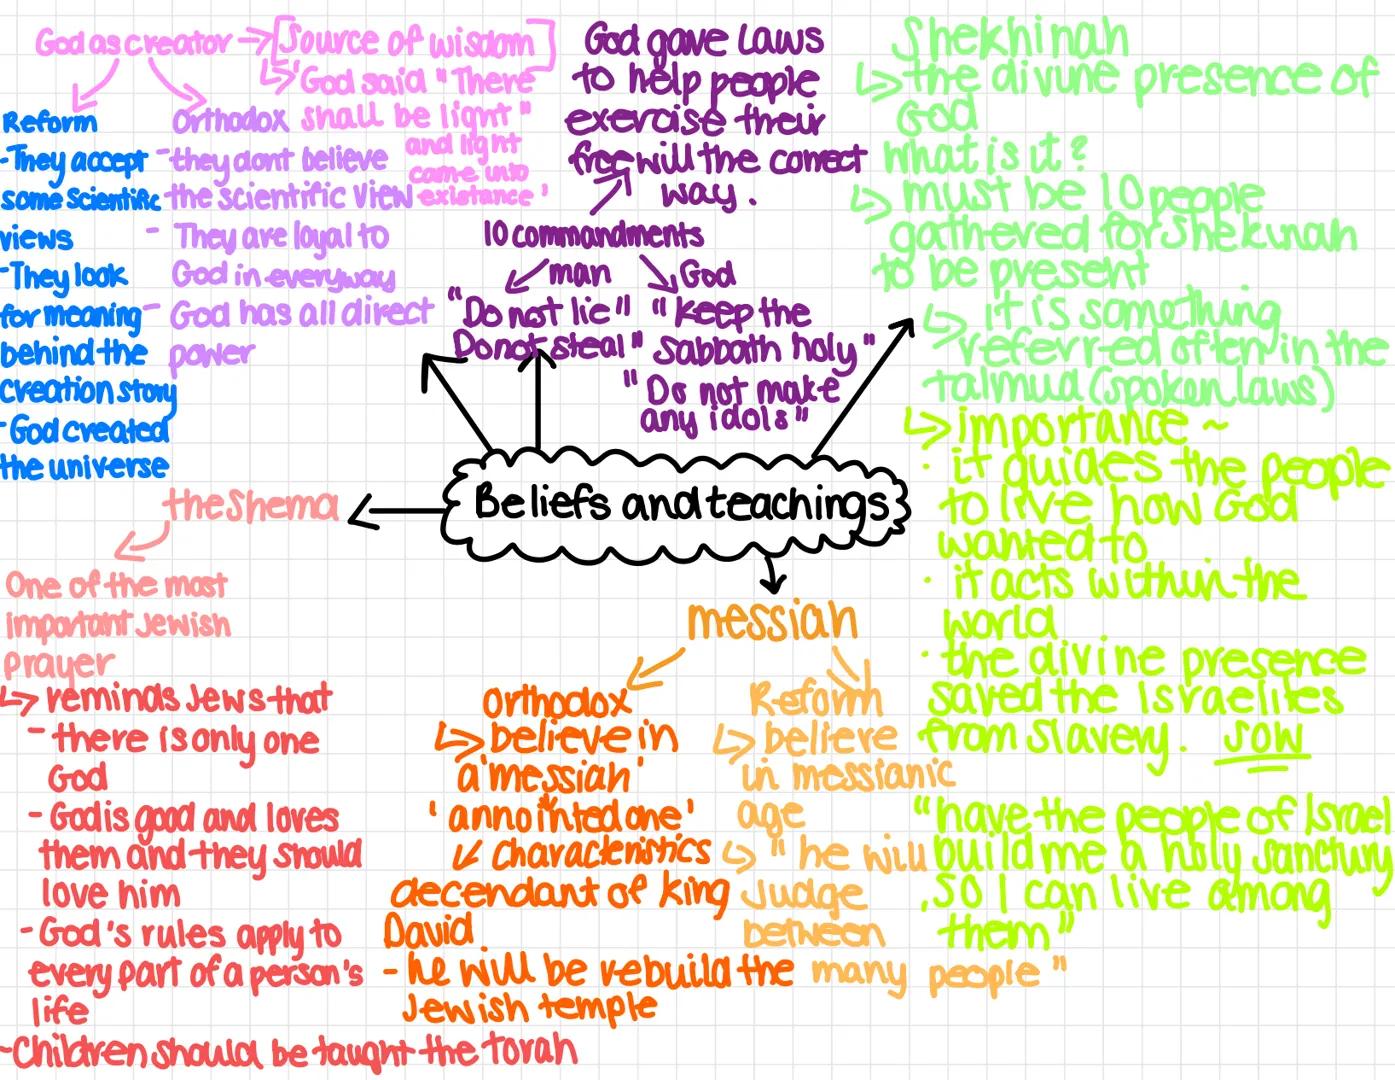 God as creator
[Source of wisdom]
God said "There
shall be light"
and light
came into
existance'
Reform
-They accept
some scientific
views
-They look
for meaning
behind the
creation story
-God created
the universe
Orthodox
-they dont believe
the scientific view
- They are loyal to
God in everyway
- God has all direct
power
God gave laws
to help people
exercise their
free will the correct
way.
10 commandments
man
"Do not lie"
Do not steal"
God
"keep the
Sabbath holy"
"Do not make
any idols"
Shekhinah
the divine presence of
God
what is it?
must be 10 people
gathered for shekinah
to be present
it is something
referred often in the
talmud (spoken laws)
importance ~
· it guides the people
to live how God
wanted to
· it acts within the
world
· the divine presence
saved the israelites
from slavery. SOW
"have the people of Israel
build me a holy sanctury
,so I can live among
them"
Beliefs and teachings
the Shema
One of the most
important Jewish
prayer
reminds Jews that
- there is only one
God
- God is good and loves
them and they should
love him
- God's rules apply to
every part of a person's
life
-Children should be taught the torah
messiah
Orthodox
believe in
a 'messiah'
'annointed one'
characteristics
decendant of king
David
- he will be rebuild the
Jewish temple
Reform
believe
in messianic
age
"he will
Judge
between
many people"